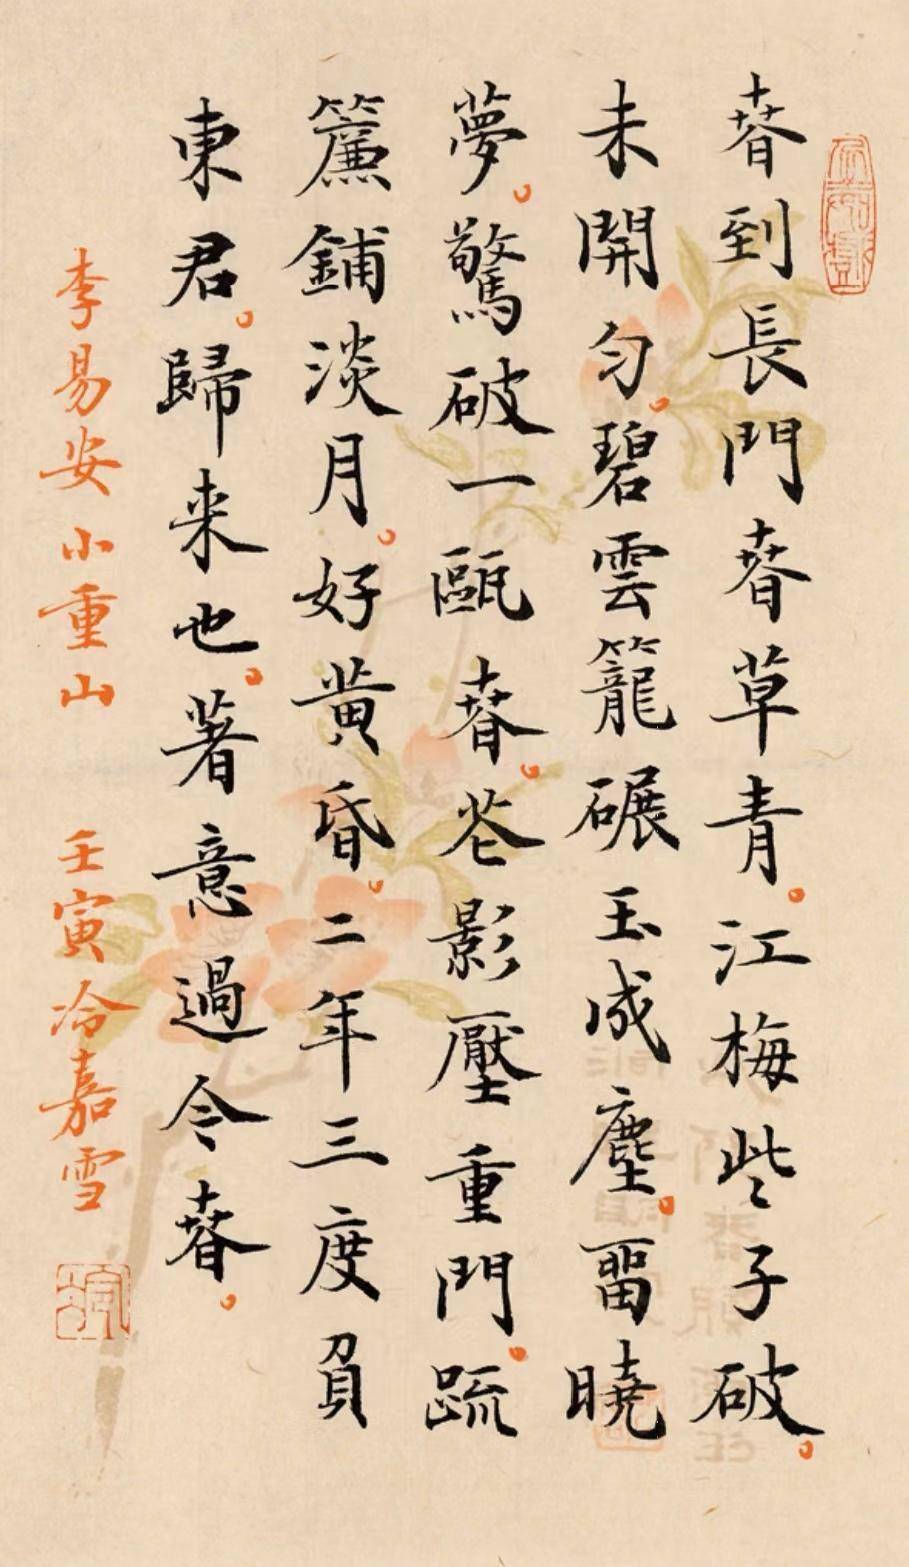 春到長門春草青。江梅些子破。
未開勻。碧雲籠碾玉成塵。留曉
夢。驚破一甌春。花影壓重門。疏
簾鋪淡月。好黄昏。二年三度負
東君。歸来也。著意過今春。
李易安小重山 壬寅冷嘉雪